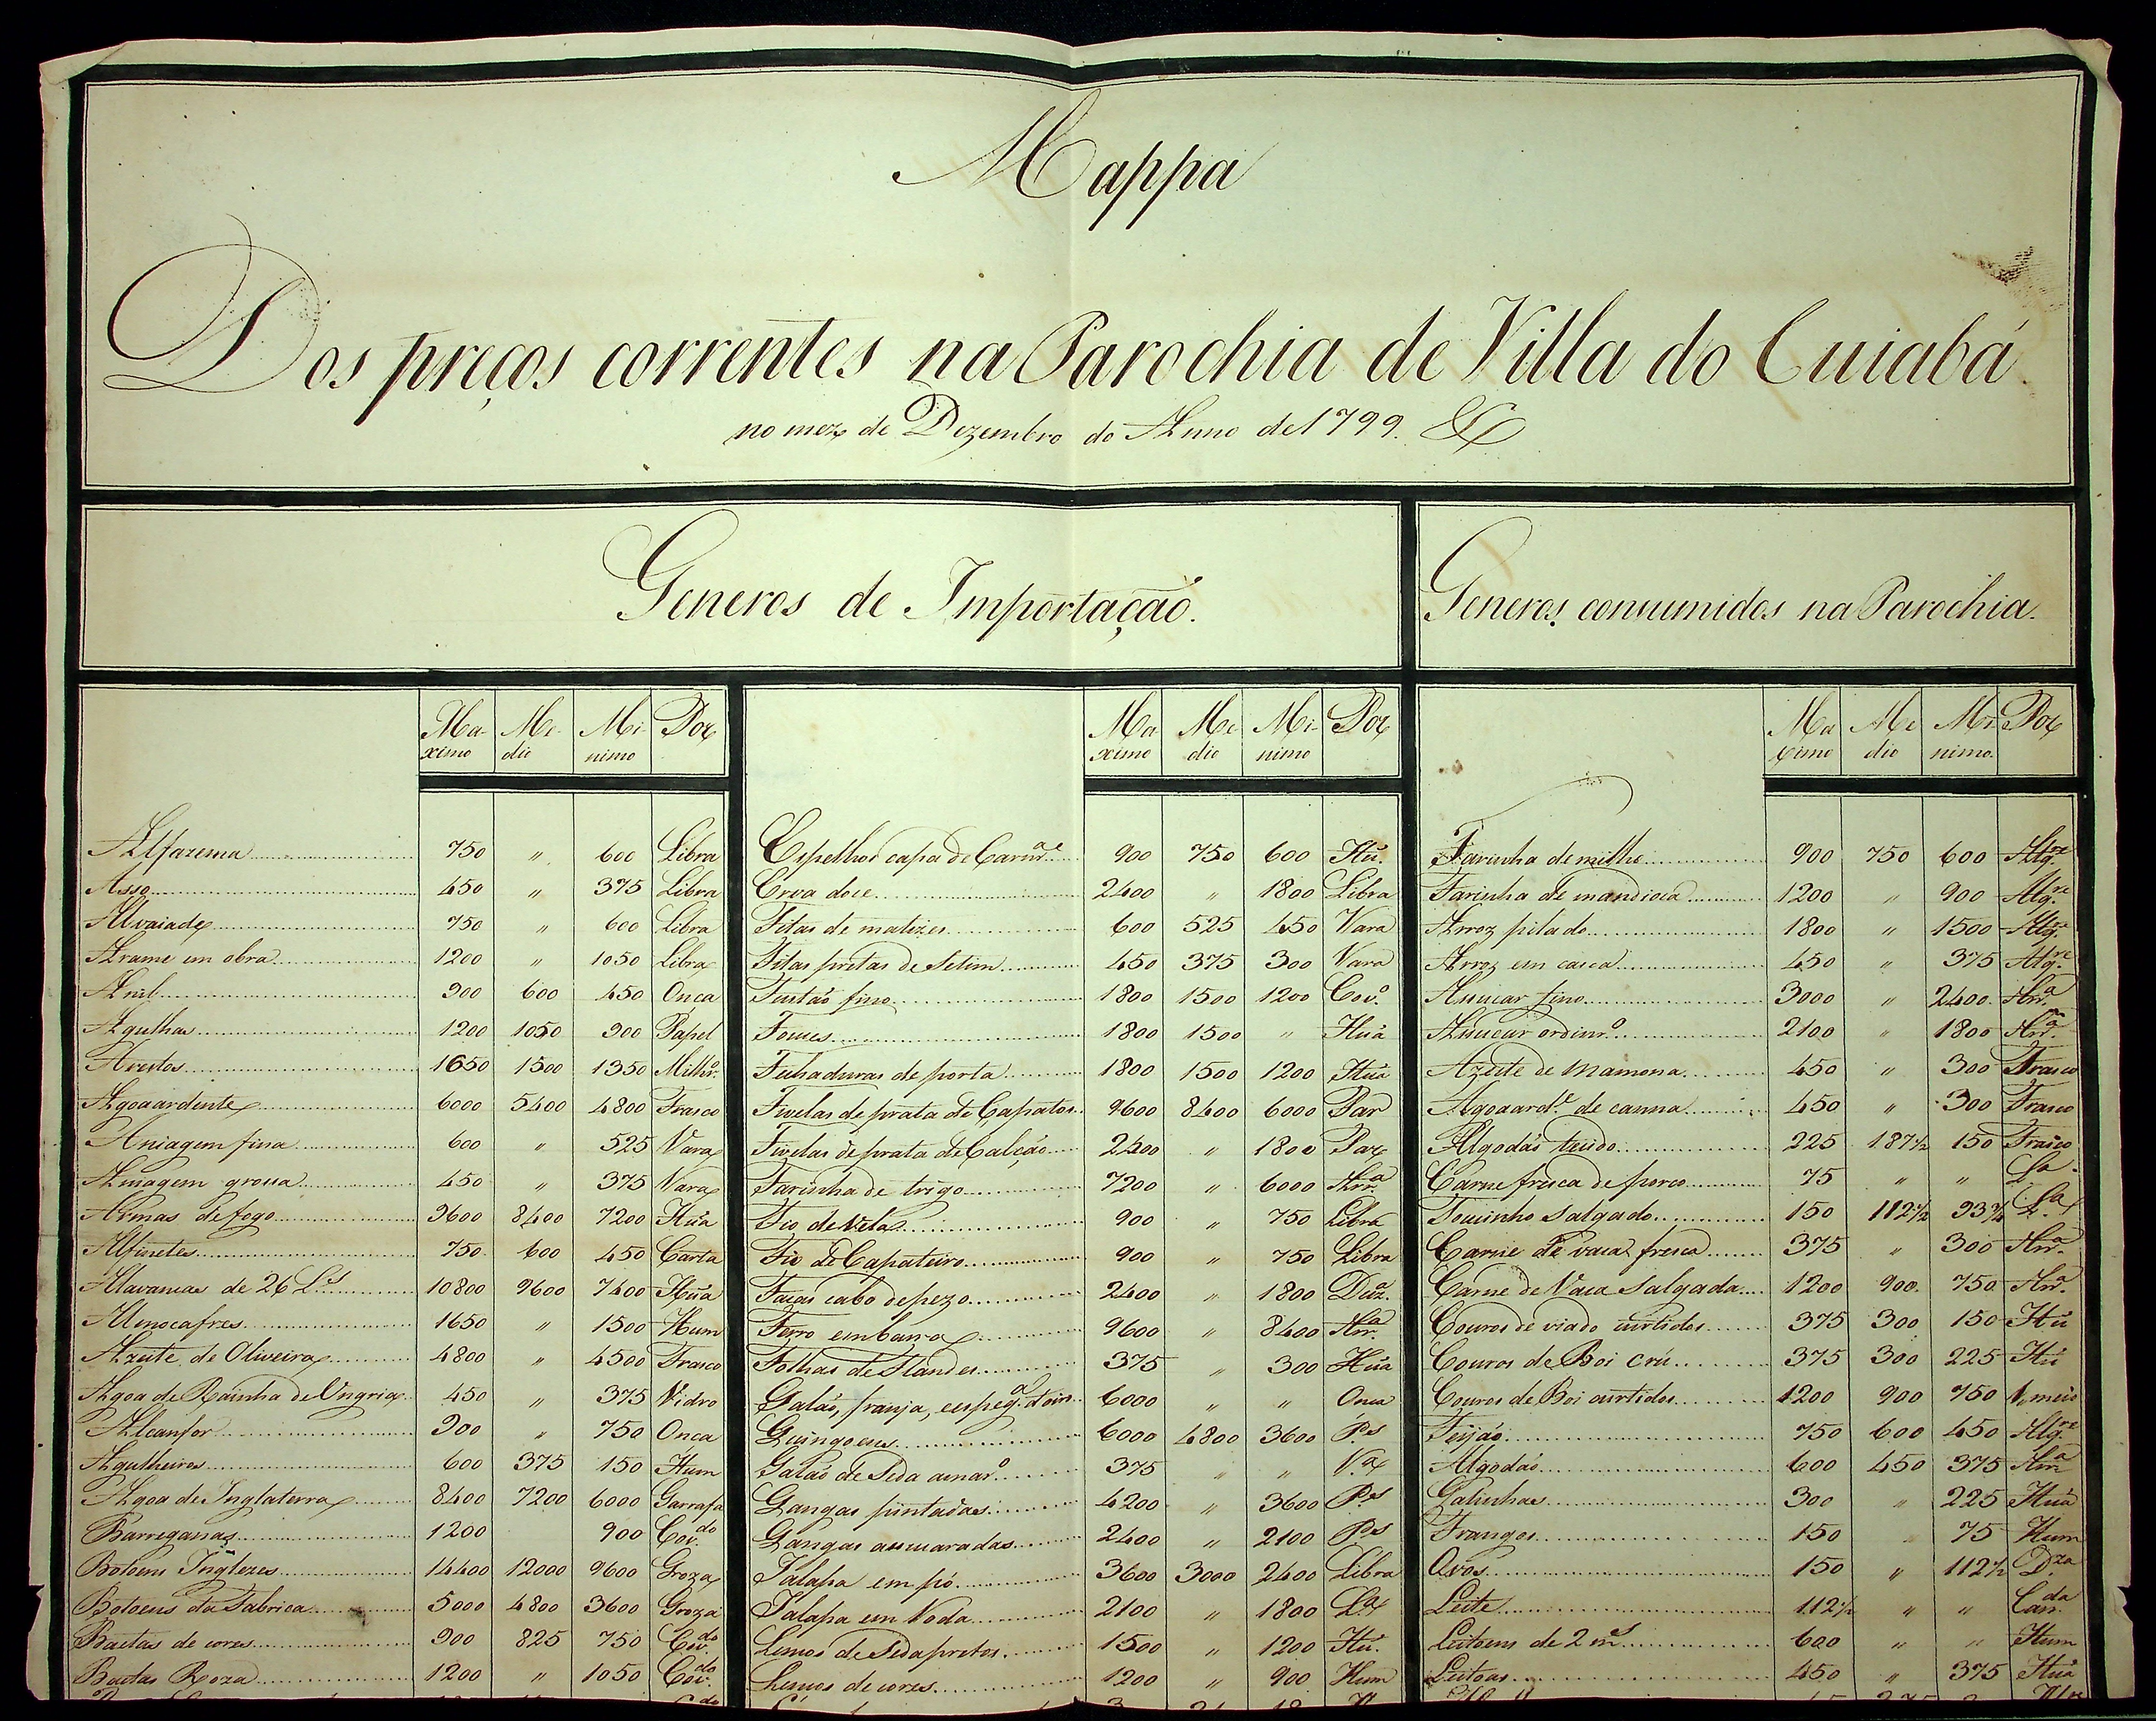 Mappa
Dos preços correntes na Parochia de Villa do Cuiabá
no mez de Dezembro do Anno de 1799. &
Generos de Importação.
Ma-ximo Me-dio Mi-nimo Por
Alfazema 750 " 600 Libra
Asso 450 " 375 Libra
Alvaiade 750 " 600 Libra
Arame em obra 1200 " 1050 Libra
Anil 900 600 450 Onca
Agulhas 1200 1050 900 Papel
Avellos 1650 1500 1350 Milhr.º
Agoaardente 6000 5400 4800 Frasco
Aniagem fina 600 " 525 Vara
Aniagem grossa 450 " 375 Vara
Armas de fogo 9600 8400 7200 Hũa
Alfinetes 750 600 450 Carta
Alavancas de 26 L.s 10800 9600 7400 Hũa
Almocafres 1650 " 1500 Hum
Azeite de Oliveira 4800 " 4500 Frasco
Agoa de Rainha de Ungria 450 " 375 Vidro
Alcanfor 900 " 750 Onca
Agulheiros 600 375 150 Hum
Agoa de Inglaterra 8400 7200 6000 Garrafa
Barreganas 1200 900 Cov.do
Botoens Inglezes 14400 12000 9600 Groza
Botoens da Fabrica 5000 4800 3600 Groza
Baetas de cores 900 825 750 Cov.do
Baetas Roza 1200 " 1050 Cov.do
Ma-ximo Me-dio Mi-nimo Por
Espelhos capa de Carnr.ª 900 750 600 Hũ.
Erva doce 2400 " 1800 Libra
Fitas de matizes 600 525 450 Vara
Fitas pretas de Setim 450 375 300 Vara
Fustaõ fino 1800 1500 1200 Cov.º
Fouces 1800 1500 " Hũa
Fechaduras de porta 1800 1500 1200 Hũa
Fivelas de prata de Çapatos 9600 8400 6000 Par
Fivelas de prata de Calção 2400 " 1800 Par
Farinha de trigo 7200 " 6000 Arr.ª
Fio de Vela 900 " 750 Libra
Fio de Çapateiro 900 " 750 Libra
Facas cabo de pezo 2400 " 1800 Duz.ª
Ferro em barra 9600 " 8400 Arr.ª
Folhas de Flandes 375 " 300 Hũa
Galaõ, franja, espeg.ª d'oiro 6000 " " Onca
Guingoens 6000 4800 3600 P.s
Galaõ de Seda amar.º 375 " " V.ª
Gangas pintadas 4200 " 3600 P.s
Gangas asucaradas 2400 " 2100 P.s
Jalapa em pó 3600 3000 2400 Libra
Jalapa em Roda 2100 " 1800 L.ª
Lenços de Seda pretos 1500 " 1200 Hũ.
Lenços de cores 1200 " 900 Hum
Generos consumidos na Parochia.
Ma-ximo Me-dio Mi-nimo. Por
Farinha de milho 900 750 600 Alq.re
Farinha de mandioca 1200 " 900 Alq.re
Arroz pilado 1800 " 1500 Alq.re
Arroz em casca 450 " 375 Alq.re
Assucar fino 3000 " 2400 Arr.ª
Assucar ordinr.º 2100 " 1800 Arr.ª
Azeite de Mamona 450 " 300 Frasco
Agoaard.e de canna 450 " 300 Frasco
Algodaõ tecido 225 187½ 150 Frasco
Carne fresca de porco 75 " " L.ª
Toucinho salgado 150 112½ 93¾ L.ª
Carne de vaca fresca 375 " 300 Arr.ª
Carne de Vaca Salgada 1200 900 750 Arr.ª
Couros de viado curtidos 375 300 150 Hũ
Couros de Boi crú 375 300 225 Hũ
Couros de Boi curtidos 1200 900 750 meio
Feijaõ 750 600 450 Alq.re
Algodaõ 600 450 375 Arr.ª
Galinhas 300 " 225 Hũa
Frangos 150 75 Hum
Ovos 150 " 112½ D.za
Leite 112½ " " Can.da
Leitoens de 2 m.s 600 " " Hum
Leitoas 450 " 375 Hũa